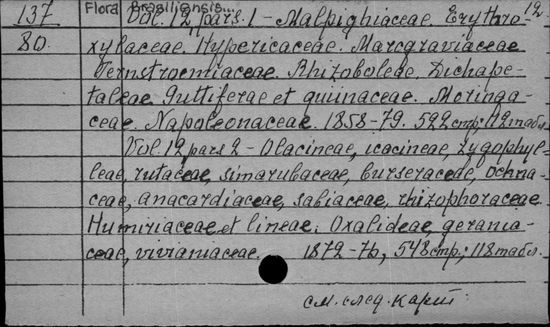 Flora Brasiliensis...
137 Vol. 12, pars. 1 - Malpighiaceae. Erythro- 12
80. xylaceae. Hypericaceae. Marcgraviaceae
Ternstroemiaceae. Rhizoboleae. Dichape-
taleae. Guttiferae et quiinaceae. Moringa-
ceae. Napoleonaceae. 1858-79. 522 стр; 112 табл.
Vol. 12, pars 2 - Olacineae, icacineae, zygophyl-
leae, rutaceae, simarubaceae, burseraceae, ochna-
ceae, anacardiaceae, sabiaceae, rhizophoraceae.
Humiriaceae et lineae. Oxalideae, gerania-
ceae, vivianiaceae. 1872-76, 548 стр; 118 табл.
см. след. карт.